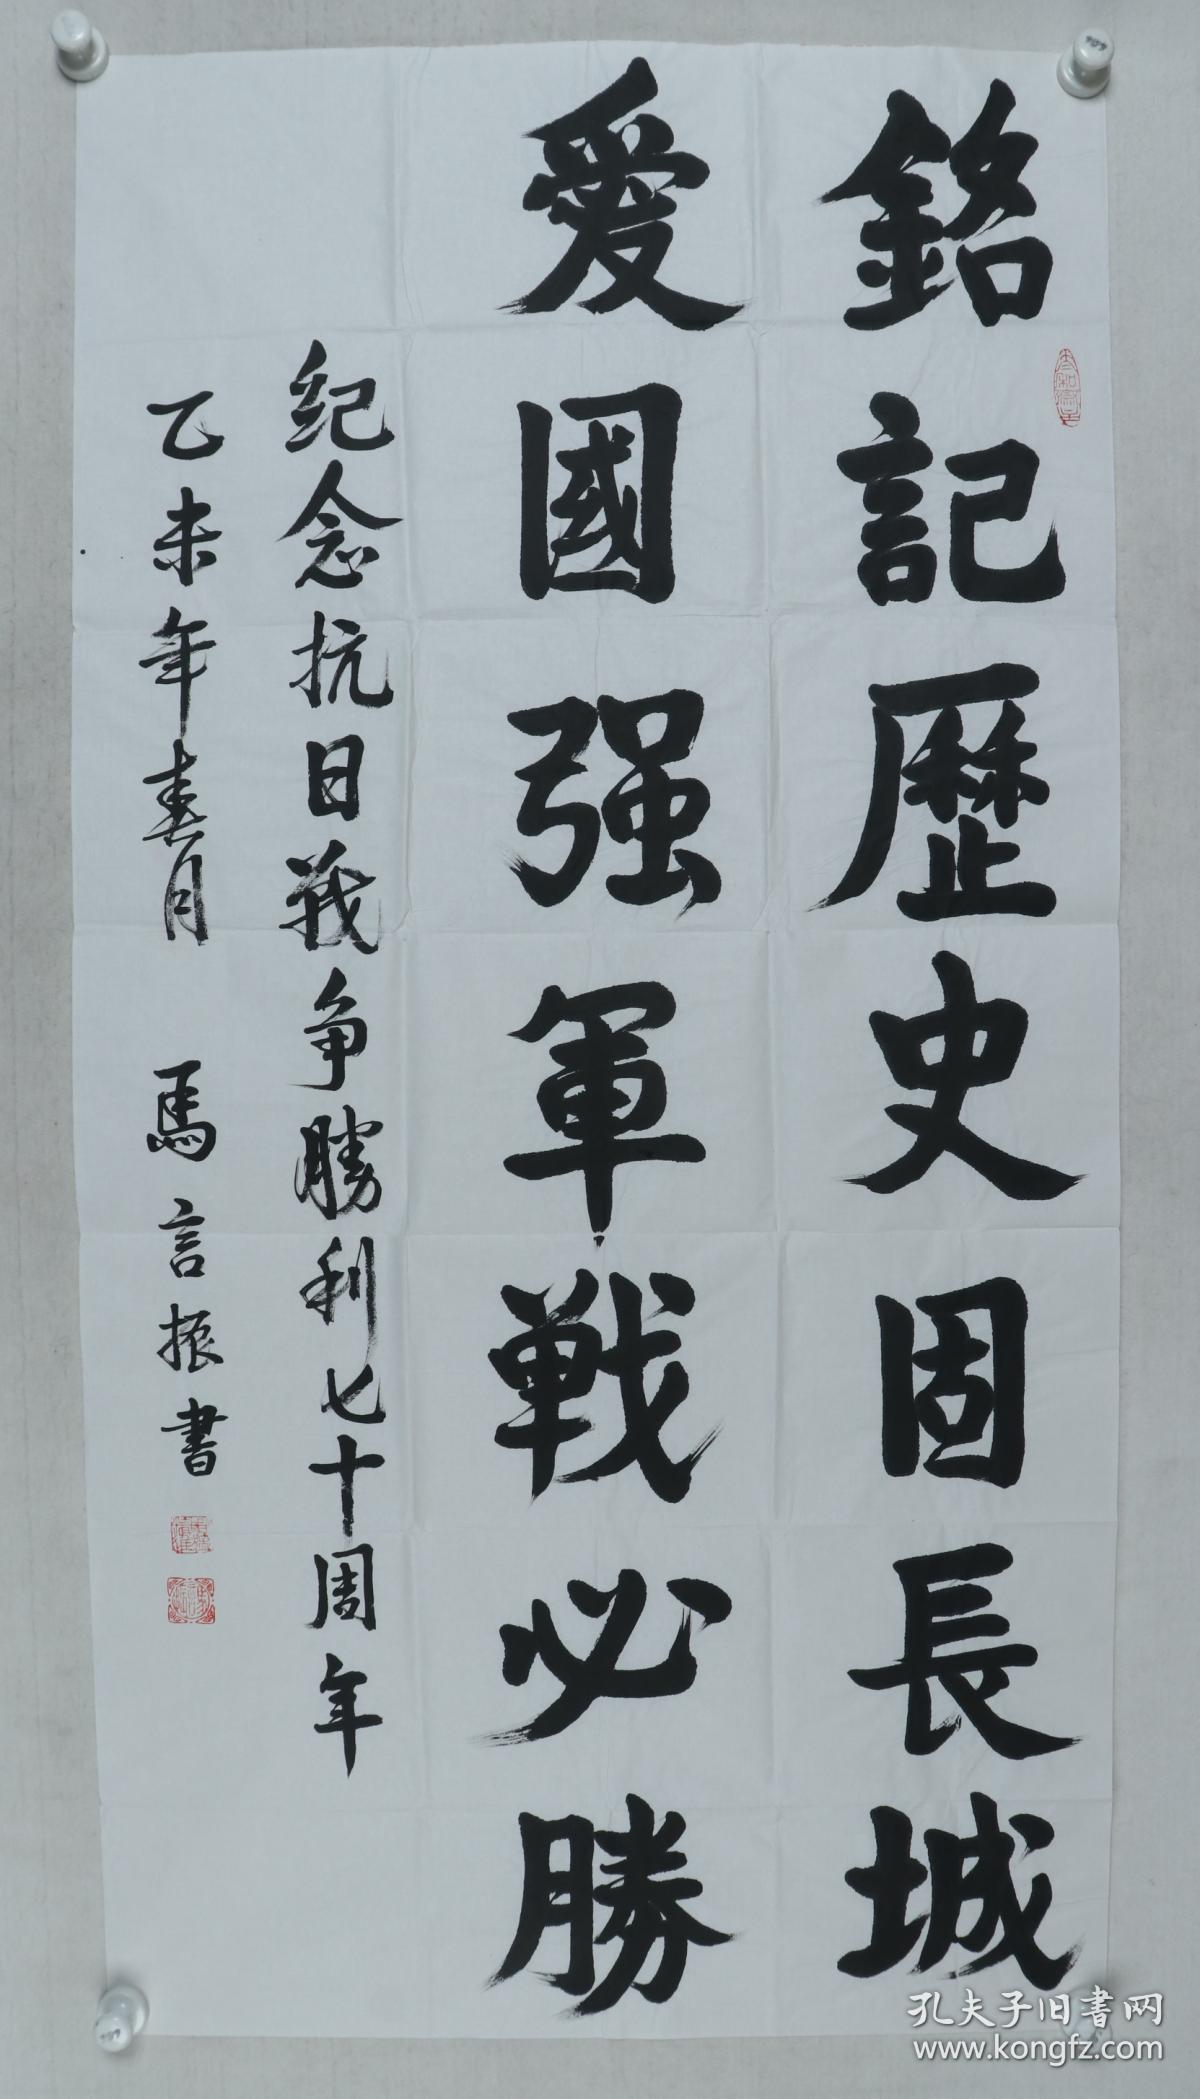 銘記歷史固長城
愛國强軍戰必勝
纪念抗日战争勝利七十周年
乙未年春月 馬言振書
孔夫子旧書网
www.kongfz.com